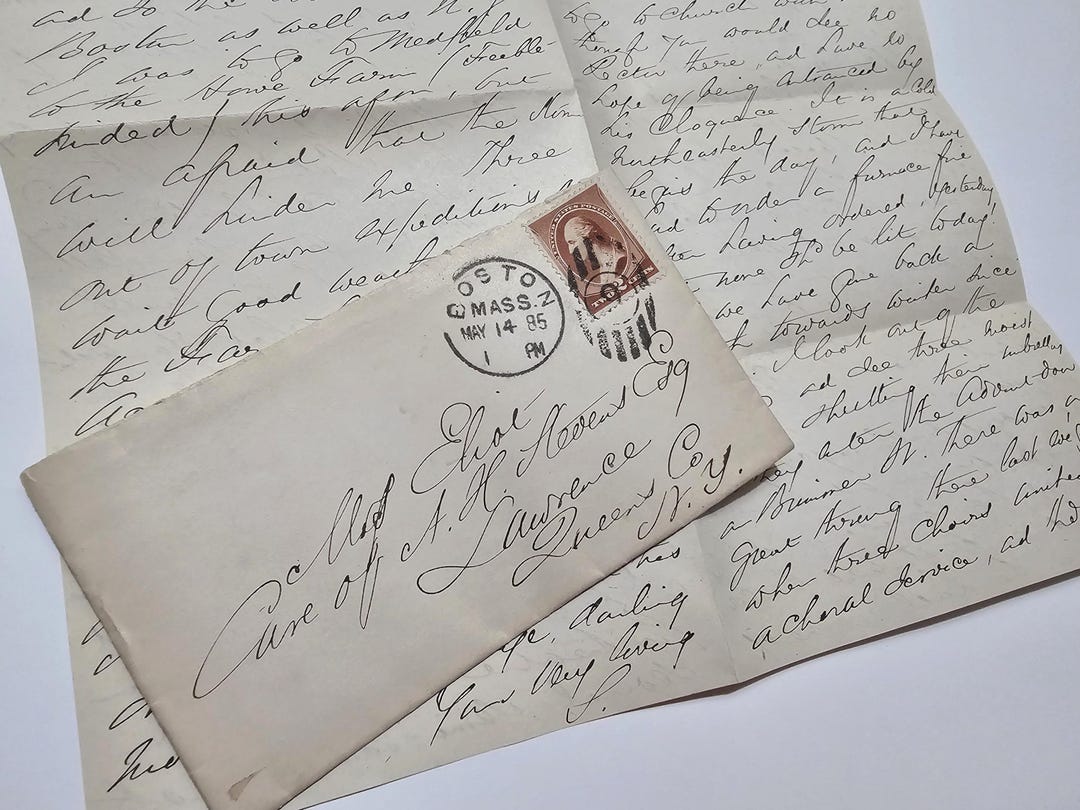 ad to the
Boston as well as N.Y.
I was to go to Medfield
to the Howe Farm (Feeble-
minded) this afn, but
am afraid that the
will hinder me. Three
out of town expeditions
wait good
the
to go to church with
though you would see no
Rector there, ad have no
hope of being entranced by
his eloquence. It is a cold
northeasterly storm that
begins the day, and I have
had to order a furnace fire
when having ordered, yesterday
that none shd be lit today!
we have gone back a
towards winter since
I look out of the
ad see three moist
shutting their umbrellas
they enter the Advent door
on Brimmer St. There was a
great throng there last
when three choirs united
a choral service, ad the
has
darling
Your very loving
S.
UNITED STATES POSTAGE
TWO CENTS
BOSTON
MASS.
MAY 14 85
1 PM
Miss Eliot
Care of A. H. Stevens Esq
Lawrence
Queens Coy.
N. Y.